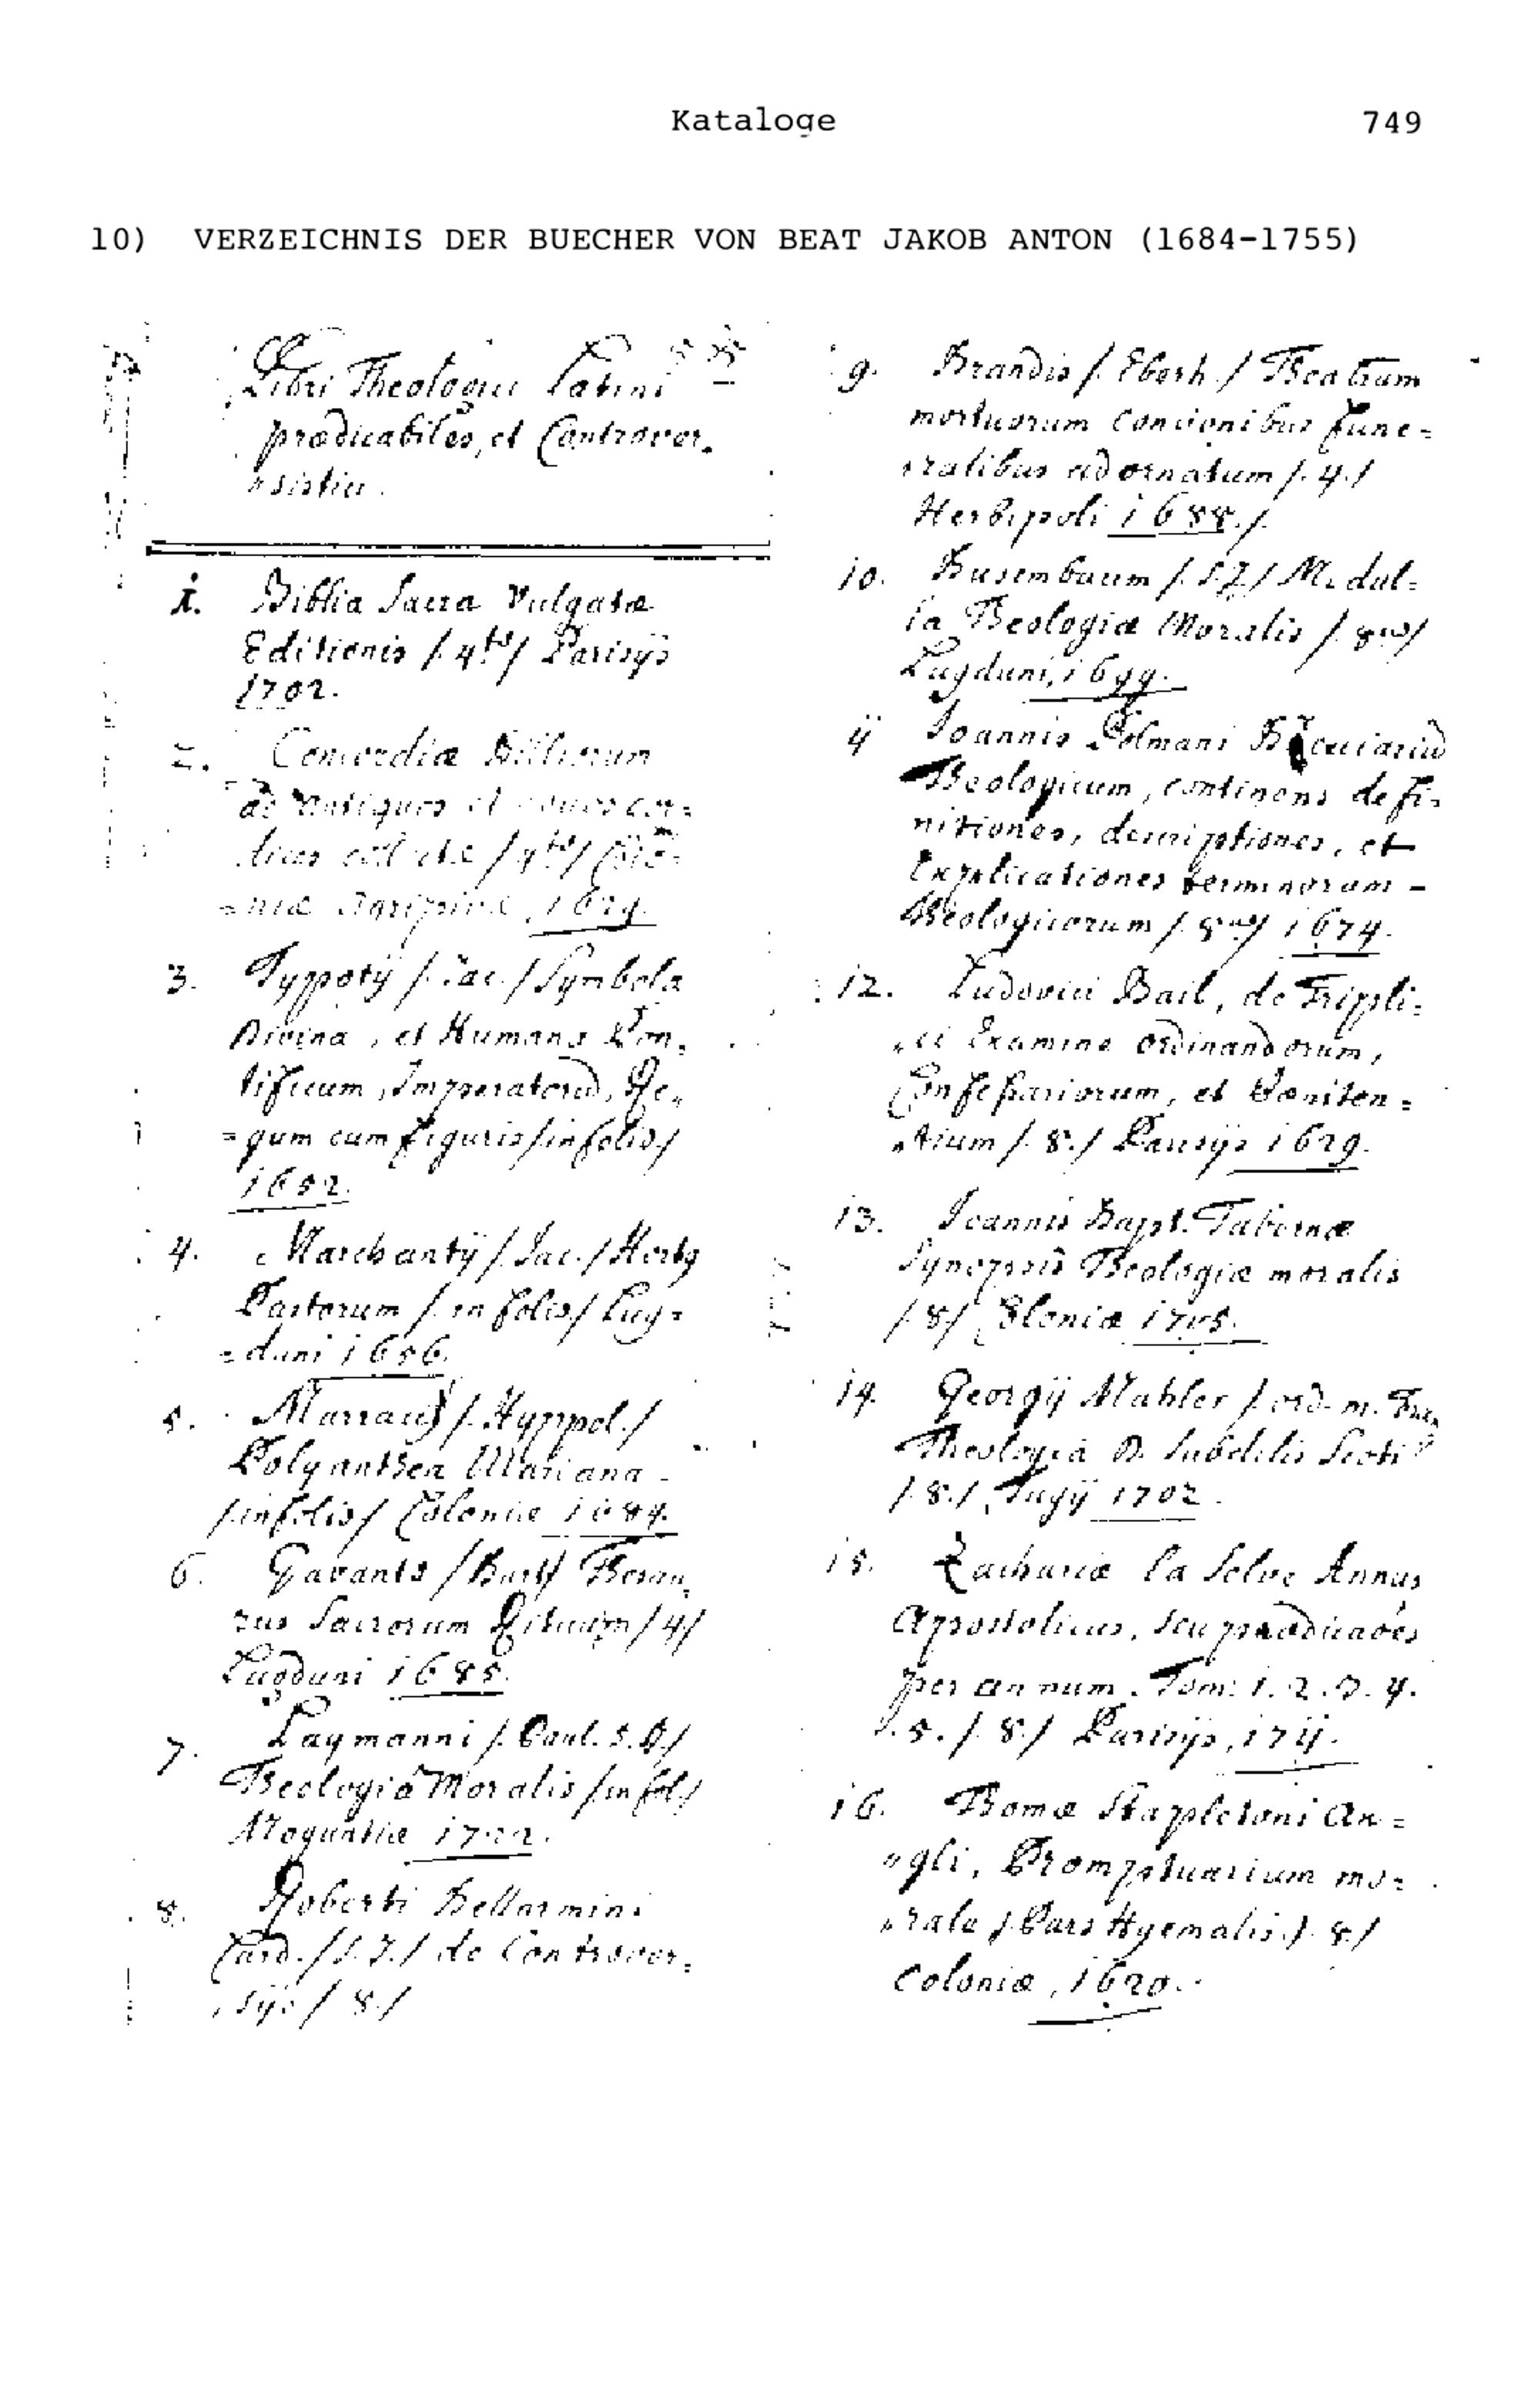 Kataloge 749
10) VERZEICHNIS DER BUECHER VON BEAT JAKOB ANTON (1684-1755)
Libri Theologici Latini
prædicabiles, et Controver-
sistici.
1. Biblia Sacra Vulgatæ
Editionis /. 4to/ Parisijs
1702.
2. Concordiæ Bibliorum
ad antiquos et novos co-
/4to/
=niæ Agripinæ, 1629.
3. Typpotij /. Jac./ Symbola
Divina, et Humana Pon-
tificum, Imperatorũ, Re=
=gum cum figuris /in folio/
1652.
4. Marchantij /. Jac./ Horty
Pastorum /. in folio/ Lug=
=duni 1656.
5. Marracij /. Hyppol./
Polyanthea Mariana
/.in folio/ Coloniæ 1684.
6. Gavants /Bart/ Thesau=
rus Sacrorum Rituum /4/
Lugduni 1685.
7. Laymanni /. Paul. S.J./
Theologia Moralis /in fol./
Moguntiæ 1722.
8. Roberti Bellarmini
Card. /S.J./ de Controver=
sijs / 8./
9. Brandis /. Eberh./ Theatrum
mortuorum concionibus fune=
ralibus adornatum /. 4./
Herbipoli 1688./.
10. Busembaum /. S.J./ Medul=
la Theologiæ Moralis /. 8vo/
Lugduni, 1699.
11 Joannis Polmani Breviariũ
Theologicum, continens defi=
nitiones, descriptiones, et
Explicationes terminorum -
Theologicorum /. 8vo/ 1674.
12. Ludovici Bail, de Tripli=
ci Examine ordinandorum,
Confessariorum, et Pœniten=
tium /. 8./ Parisijs 1629.
13. Joannis Bapt. Tabernæ
Synopsis Theologiæ moralis
/. 8/ Coloniæ 1705.
14. Georgij Mahler /. ord. m.
Theologia D. Subtilis Scoti
/. 8./ Tugij 1702.
15. Zachariæ la Selve Annus
Apostolicus, seu prædicaões
per annum. Tom: 1. 2. 3. 4.
5. /. 8./ Parisijs, 1711.
16. Thomæ Stapletoni An=
gli, Promptuarium mo=
rale /. Pars Hyemalis./. 8/
Coloniæ, 1620.